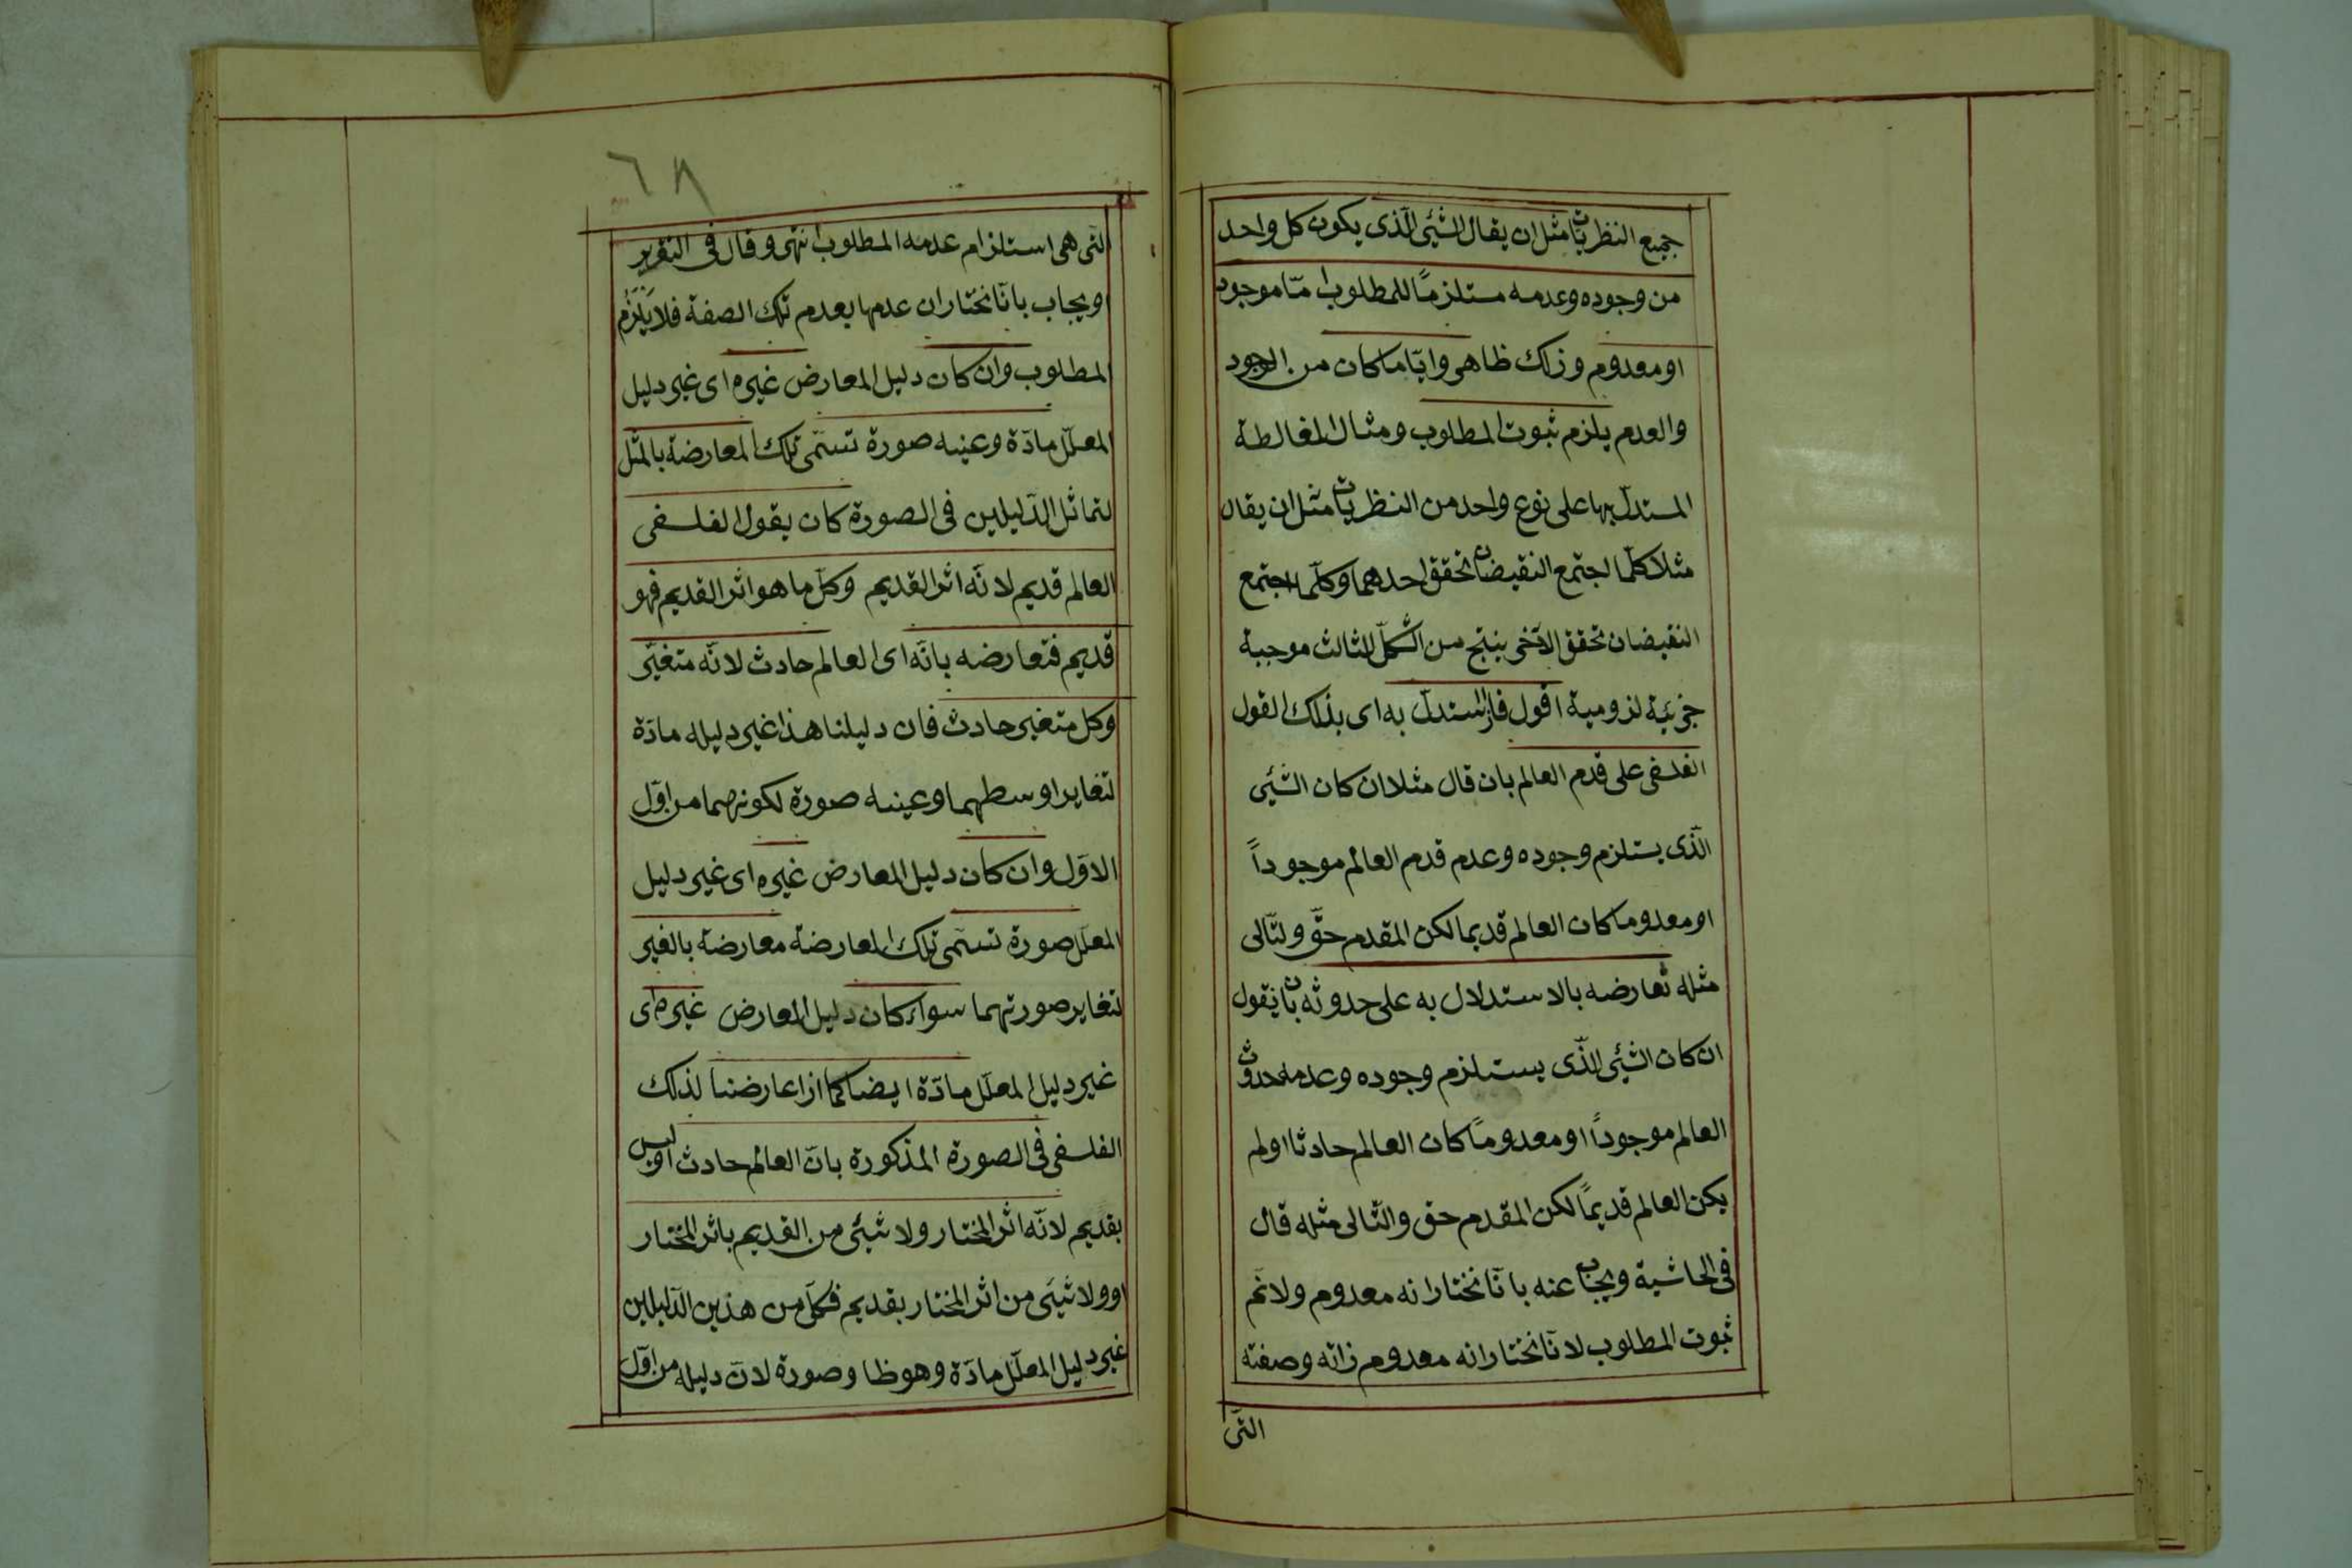 جميع النظريات مثل ان يقال الشئ الذى يكون كل واحد
من وجوده وعدمه مستلزمًا للمطلوب امّا موجود
او معدوم وذلك ظاهر وايّا ما كان من الوجود
والعدم يلزم ثبوت المطلوب ومثال المغالطة
المستدلّ بها على نوع واحد من النظريات مثل ان يقال
مثلا كلّما اجتمع النقيضان تحقق احدهما وكلّما اجتمع
النقيضان تحقق الآخر ينتج من الشكل الثالث موجبة
جزئية لزومية اقول فان استدلّ به اى بذلك القول
الفلسفى على قدم العالم بان قال مثلا ان كان الشئ
الّذى يستلزم وجوده وعدم قدم العالم موجوداً
او معدوما كان العالم قديما لكن المقدم حقّ والتّالى
مثله تعارضه بالاستدلال به على حدوثه بان نقول
ان كان الشئ الّذى يستلزم وجوده وعدمه حدوث
العالم موجوداً او معدومًا كان العالم حادثا اولم
يكن العالم قديمًا لكن المقدم حق والتّالى مثله قال
فى الحاشية ويجاب عنه بانّا نختار انه معدوم ولانم
ثبوت المطلوب لانّا نختار انه معدوم ذاته وصفته
التى
٦٨
التى هى استلزام عدمه المطلوب انتهى وقال فى التقرير
ويجاب بانّا نختار ان عدمها بعدم تلك الصفة فلا يَلْزَمُ
المطلوب وان كان دليل المعارض غيره اى غير دليل
المعلّل مادّة وعينه صورة تسمّى تلك المعارضة بالمثل
لتماثل الدّليلين فى الصورة كان يقول الفلسفى
العالم قديم لانّه اثر القديم وكلّ ما هو اثر القديم فهو
قديم فتعارضه بانّه اى العالم حادث لانّه متغيّر
وكل متغير حادث فان دليلنا هذا غير دليله مادّة
لتغاير اوسطهما وعينه صورة لكونهما من اوّل
الاوّل وان كان دليل المعارض غيره اى غير دليل
المعلّل صورة تسمّى تلك المعارضة معارضة بالغير
لتغاير صورتهما سواء كان دليل المعارض غيره اى
غير دليل المعلّل مادّة ايضا كما اذا عارضنا لذلك
الفلسفى فى الصورة المذكورة بانّ العالم حادث او ليس
بقديم لانّه اثر المختار ولا شئ من القديم باثر المختار
او ولا شئ من اثر المختار بقديم فكلّ من هذين الدّليلين
غير دليل المعلّل مادّة وهو ظا وصورة لانّ دليله من اوّل